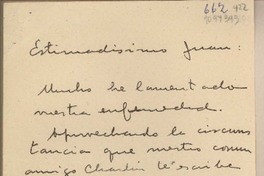 662 422
Estimadísimo Juan:
Mucho he lamentado
vuestra enfermedad.
Aprovechando la circuns
tancia que nuestro comun
amigo Chadín le escribe